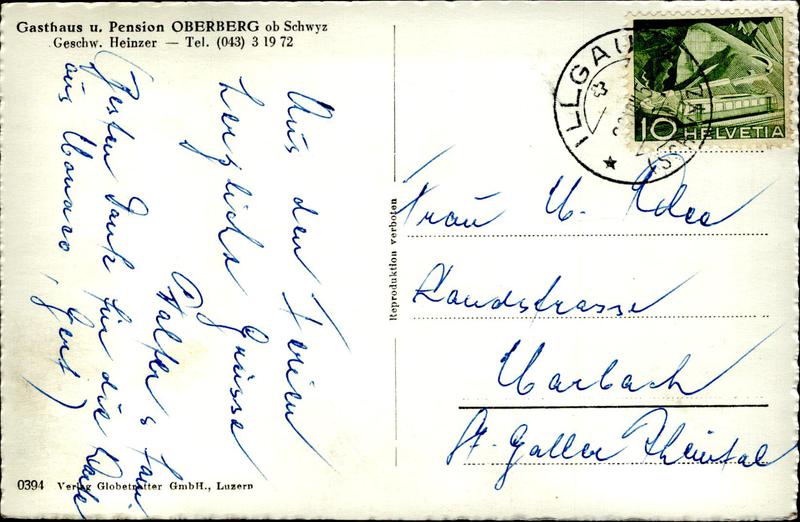 Gasthaus u. Pension OBERBERG ob Schwyz
Geschw. Heinzer — Tel. (043) 3 19 72
Aus den Ferien
herzliche Grüsse
Walter
(Besten Dank für die Karte
aus Monaco, Gert)
0394 Verlag Globetrotter GmbH., Luzern
Reproduktion verboten
ILLGAU
(SCHWYZ)
10 HELVETIA
Frau M.
Landstrasse
Marbach
St. Galler Rheintal